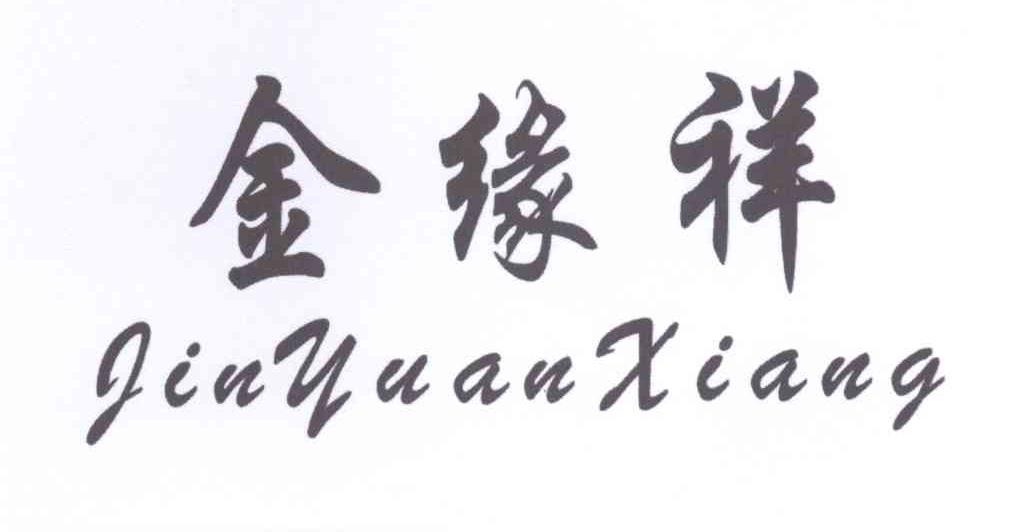 金缘祥
JinYuanXiang